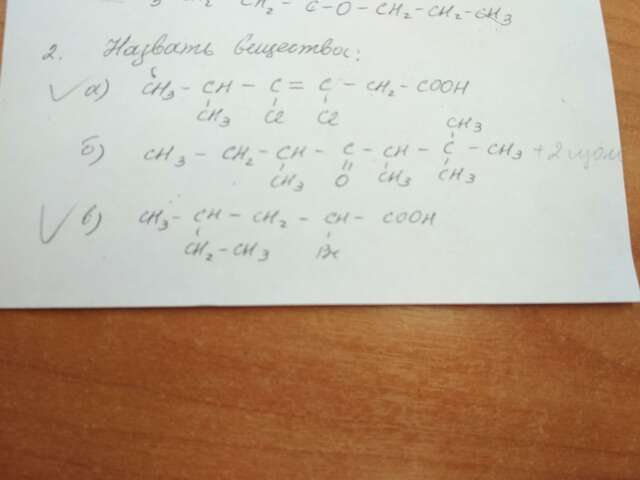 CH₂ - C - O - CH₂ - CH₂ - CH₃
2. Назвать вещества:
а) CH₃ - CH - C = C - CH₂ - COOH
CH₃ Cl Cl
CH₃
б) CH₃ - CH₂ - CH - C - CH - C - CH₃ + 2 изом
CH₃ O CH₃ CH₃
в) CH₃ - CH - CH₂ - CH - COOH
CH₂ - CH₃ Br